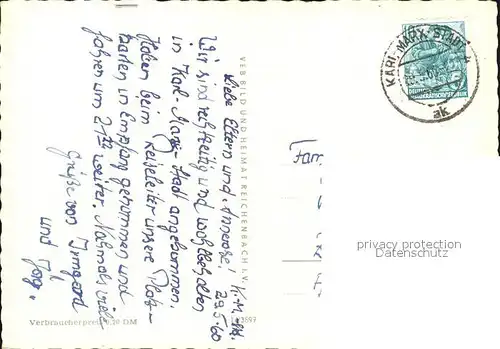 K.-M.-St. 29.5.60
Liebe Eltern und Annerose!
Wir sind rechtzeitig und wohlbehalten
in Karl-Marx-Stadt angekommen.
Haben beim Reiseleiter unsere Platz-
karten in Empfang genommen und
fahren um 21 weiter. Nochmals viele
Grüße von Irmgard
und Jörg.
VEB BILD UND HEIMAT REICHENBACH I. V.
Verbraucherpreis 0,20 DM
KARL-MARX-STADT
ak
DEUTSCHE
DEMOKRATISCHE REPUBLIK
Fam
privacy protection
Datenschutz